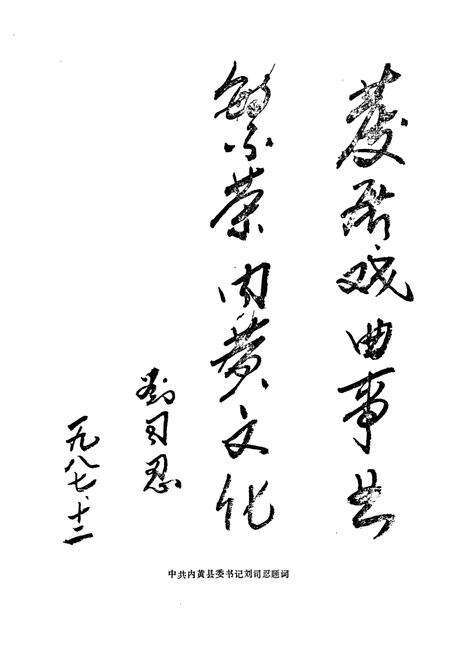 發展戏曲事业
繁荣内黄文化
劉司忍
一九八七、十二
中共内黄县委书记刘司忍题词